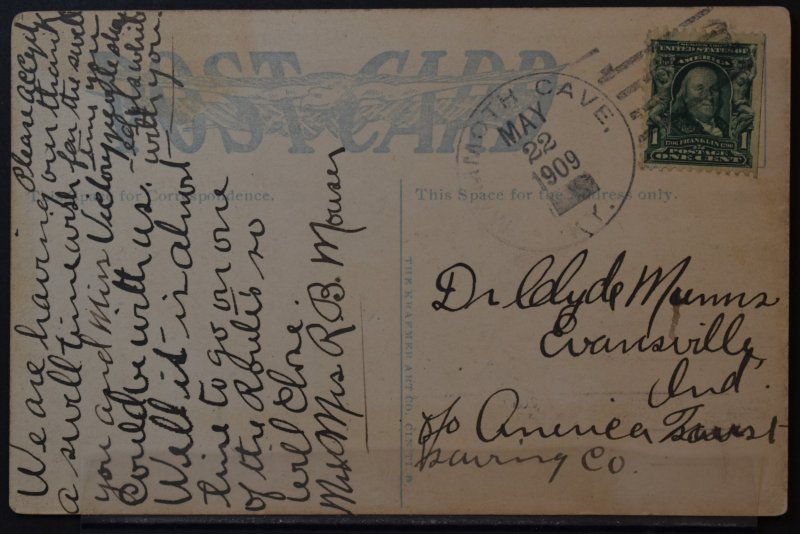 POST CARD
This Space for Correspondence.
This Space for the Address only.
THE KRAEMER ART CO., CIN'TI
MAMMOTH CAVE,
MAY
22
1909
KY.
UNITED STATES OF
AMERICA
1706 FRANKLIN 1790
1 POSTAGE
ONE CENT
Dr Clyde Munns
Evansville
Ind.
c/o America Tourist
Co.
Please accept
our thanks
for the swell
time you
people
with you.
We are having
a swell time wish
you and Miss
Could be with us.
Well it is almost
time to go on one
of the Routes so
will close.
Mr & Mrs R. B. Mouser